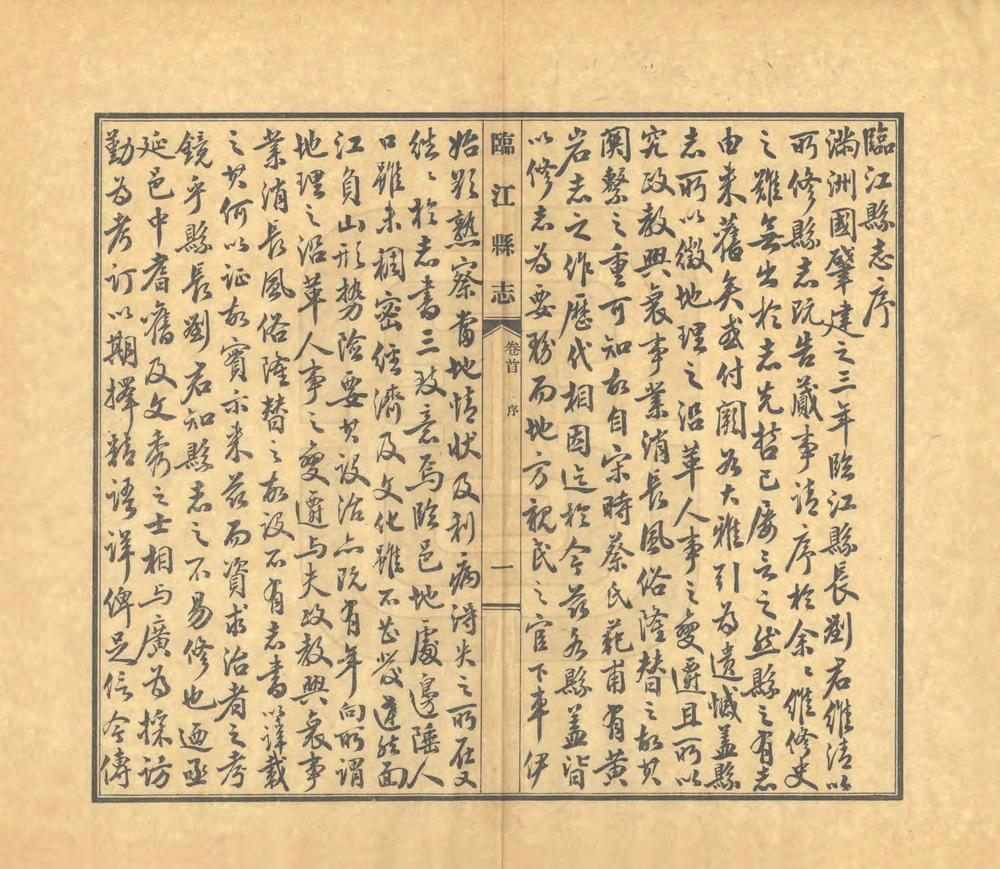 臨江縣志序
滿洲國肇建之三年臨江縣長劉君維清以
所修縣志既告蕆事請序於余余維修史
之難無出於志先哲已屢言之然縣之有志
由來舊矣或付闕如大雅引為遺憾蓋縣
志所以徵地理之沿革人事之變遷且所以
究政教興衰事業消長風俗隆替之故其
關繫之重可知故自宋時蔡氏範甫有黃
岩志之作歷代相因迄於今茲各縣蓋皆
以修志為要務而地方親民之官下車伊
臨江縣志
卷首
序
一
始欲熟察當地情狀及利病得失之所在又
往往於志書三致意焉臨邑地處邊陲人
口雖未稠密經濟及文化雖不甚發達然面
江負山形勢險要其設治亦既有年向所謂
地理之沿革人事之變遷與夫政教興衰事
業消長風俗隆替之故設不有志書以詳載
之其何以証故實示來茲而資求治者之考
鏡乎縣長劉君知縣志之不易修也迺亟
延邑中耆舊及文秀之士相與廣為採訪
勤為考訂以期擇精語詳俾足信今傳